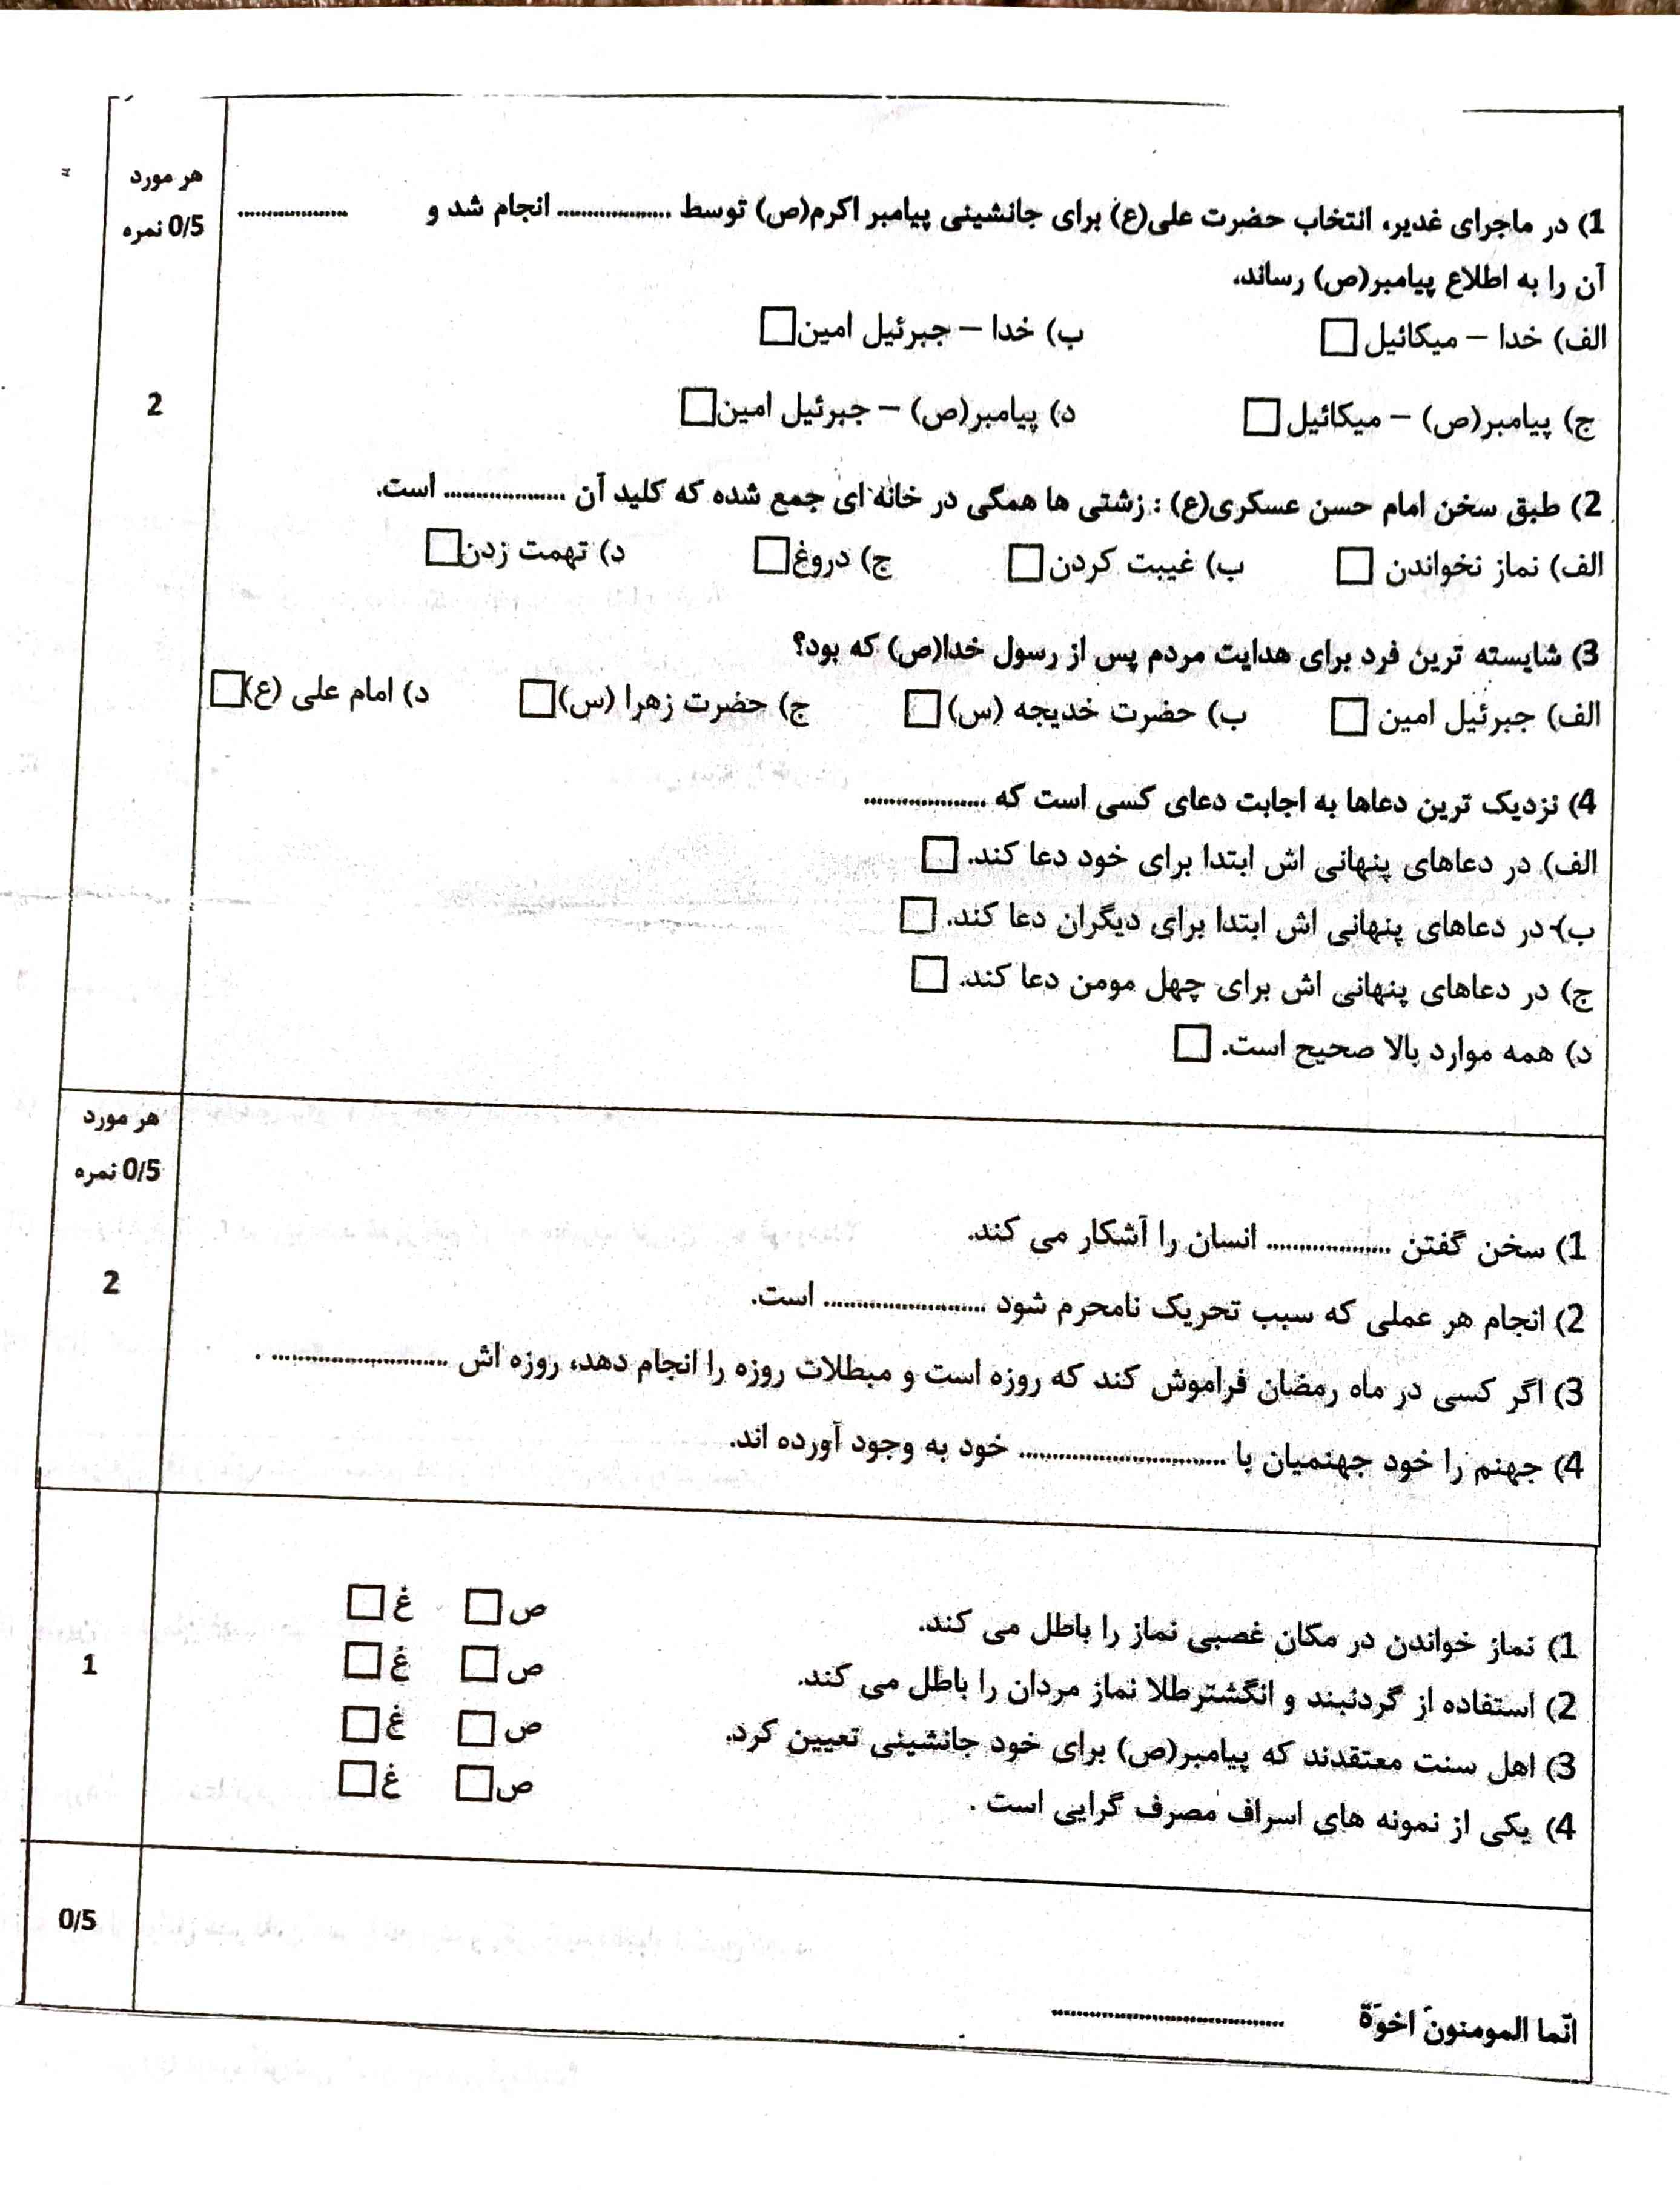 هر مورد
0/5 نمره
2
1) در ماجرای غدیر، انتخاب حضرت علی(ع) برای جانشینی پیامبر اکرم(ص) توسط .................. انجام شد و ..................
آن را به اطلاع پیامبر(ص) رساند.
الف) خدا – میکائیل □ ب) خدا – جبرئیل امین □
ج) پیامبر(ص) – میکائیل □ د) پیامبر(ص) – جبرئیل امین □
2) طبق سخن امام حسن عسکری(ع) : زشتی ها همگی در خانه ای جمع شده که کلید آن .................. است.
الف) نماز نخواندن □ ب) غیبت کردن □ ج) دروغ □ د) تهمت زدن □
3) شایسته ترین فرد برای هدایت مردم پس از رسول خدا(ص) که بود؟
الف) جبرئیل امین □ ب) حضرت خدیجه (س) □ ج) حضرت زهرا (س) □ د) امام علی (ع) □
4) نزدیک ترین دعاها به اجابت دعای کسی است که ..................
الف) در دعاهای پنهانی اش ابتدا برای خود دعا کند. □
ب) در دعاهای پنهانی اش ابتدا برای دیگران دعا کند. □
ج) در دعاهای پنهانی اش برای چهل مومن دعا کند. □
د) همه موارد بالا صحیح است. □
هر مورد
0/5 نمره
2
1) سخن گفتن .................. انسان را آشکار می کند.
2) انجام هر عملی که سبب تحریک نامحرم شود ........................ است.
3) اگر کسی در ماه رمضان فراموش کند که روزه است و مبطلات روزه را انجام دهد، روزه اش .......................... .
4) جهنم را خود جهنمیان با .............................. خود به وجود آورده اند.
1
1) نماز خواندن در مکان غصبی نماز را باطل می کند. ص □ غ □
2) استفاده از گردنبند و انگشترطلا نماز مردان را باطل می کند. ص □ غ □
3) اهل سنت معتقدند که پیامبر(ص) برای خود جانشینی تعیین کرد. ص □ غ □
4) یکی از نمونه های اسراف مصرف گرایی است . ص □ غ □
0/5
انّما المومنونَ اخوَة ..................................